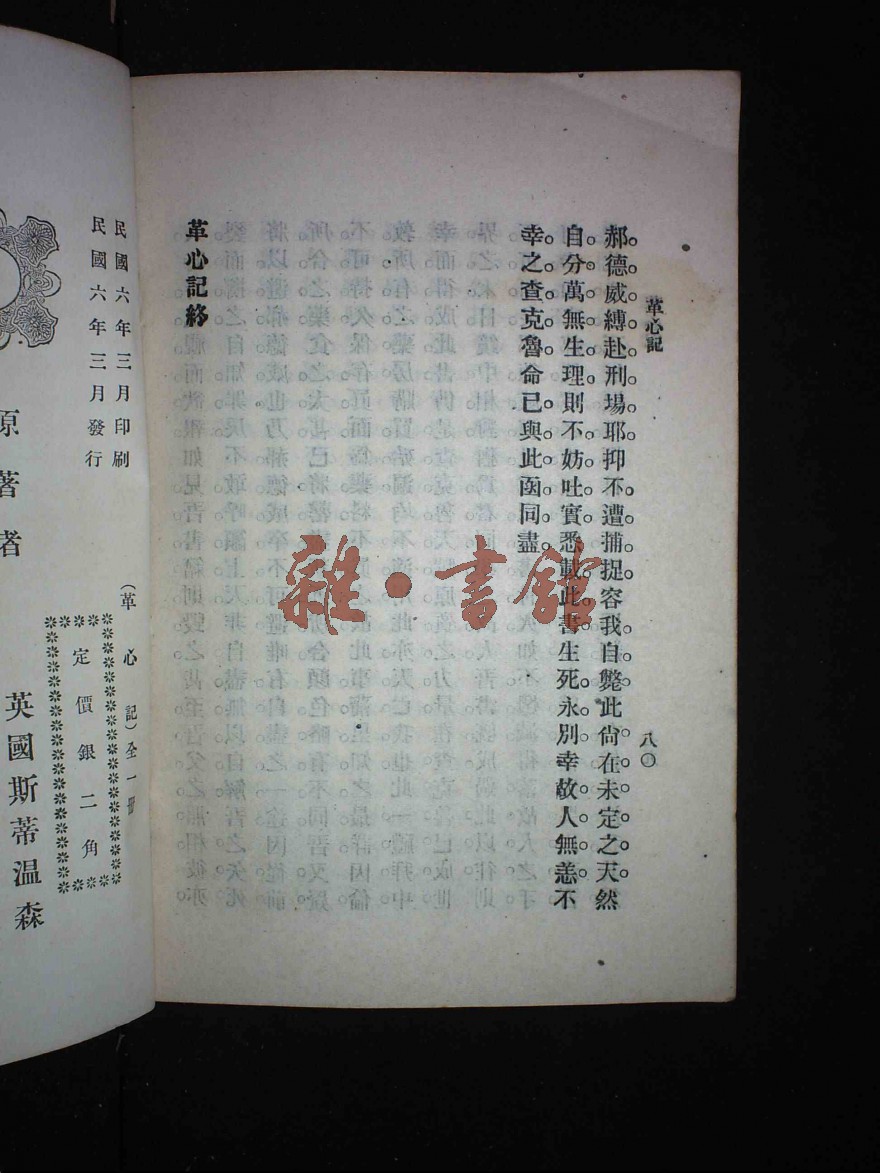 革心記
八〇
郝德威縛赴刑場耶。抑不遭捕捉。容我自斃。此尙在未定之天。然
自分萬無生理。則不妨吐實。悉載此書。生死永別。幸故人無恙。不
幸之查克魯命已與此函同盡。
革心記終
雜·書館
民國六年三月印刷
民國六年三月發行
(革心記)全一冊
定價銀二角
原著者
英國斯蒂溫森